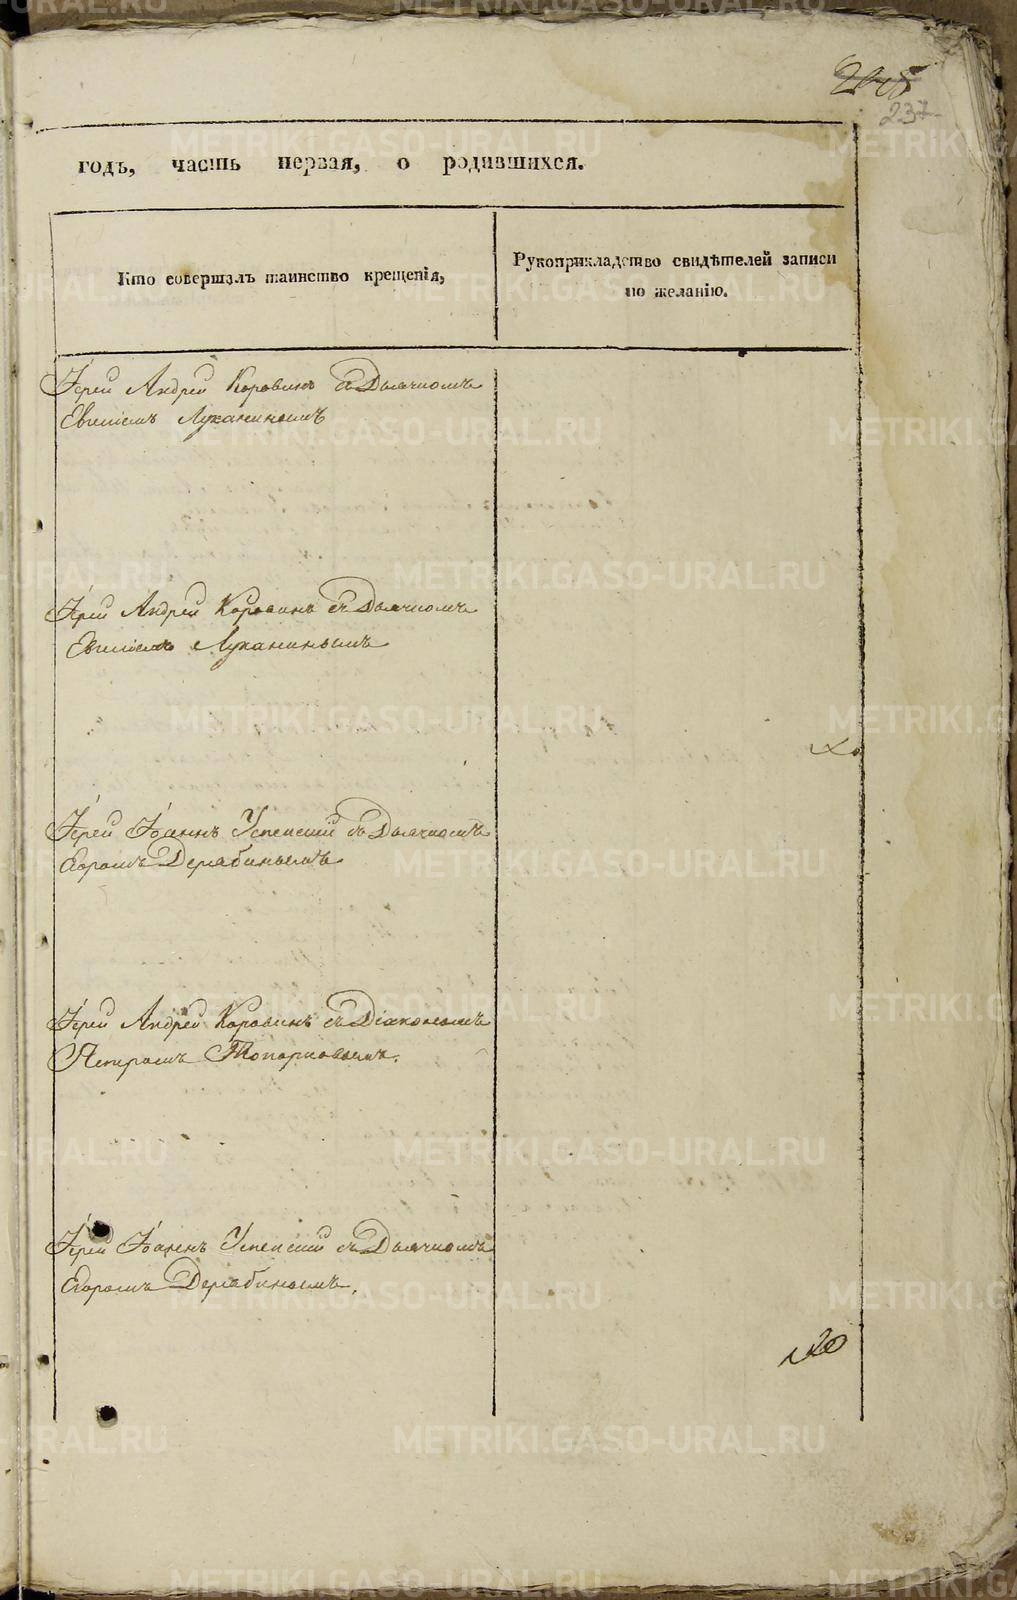 237
годъ, часть первая, о родившихся.
Кто совершалъ таинство крещенія,
Рукоприкладство свидѣтелей записи
по желанію.
Іерей Андрей Коровинъ съ Дьячкомъ
Евгеніемъ Луканинымъ
Іерей Андрей Коровинъ съ Дьячкомъ
Евгеніемъ Луканинымъ
Іерей Іоаннъ Успенскій съ Дьячкомъ
Егоромъ Дерябинымъ
Іерей Андрей Коровинъ съ Діакономъ
Петромъ Топорковымъ.
Іерей Іоаннъ Успенскій съ Дьячкомъ
Егоромъ Дерябинымъ.
METRIKI.GASO-URAL.RU